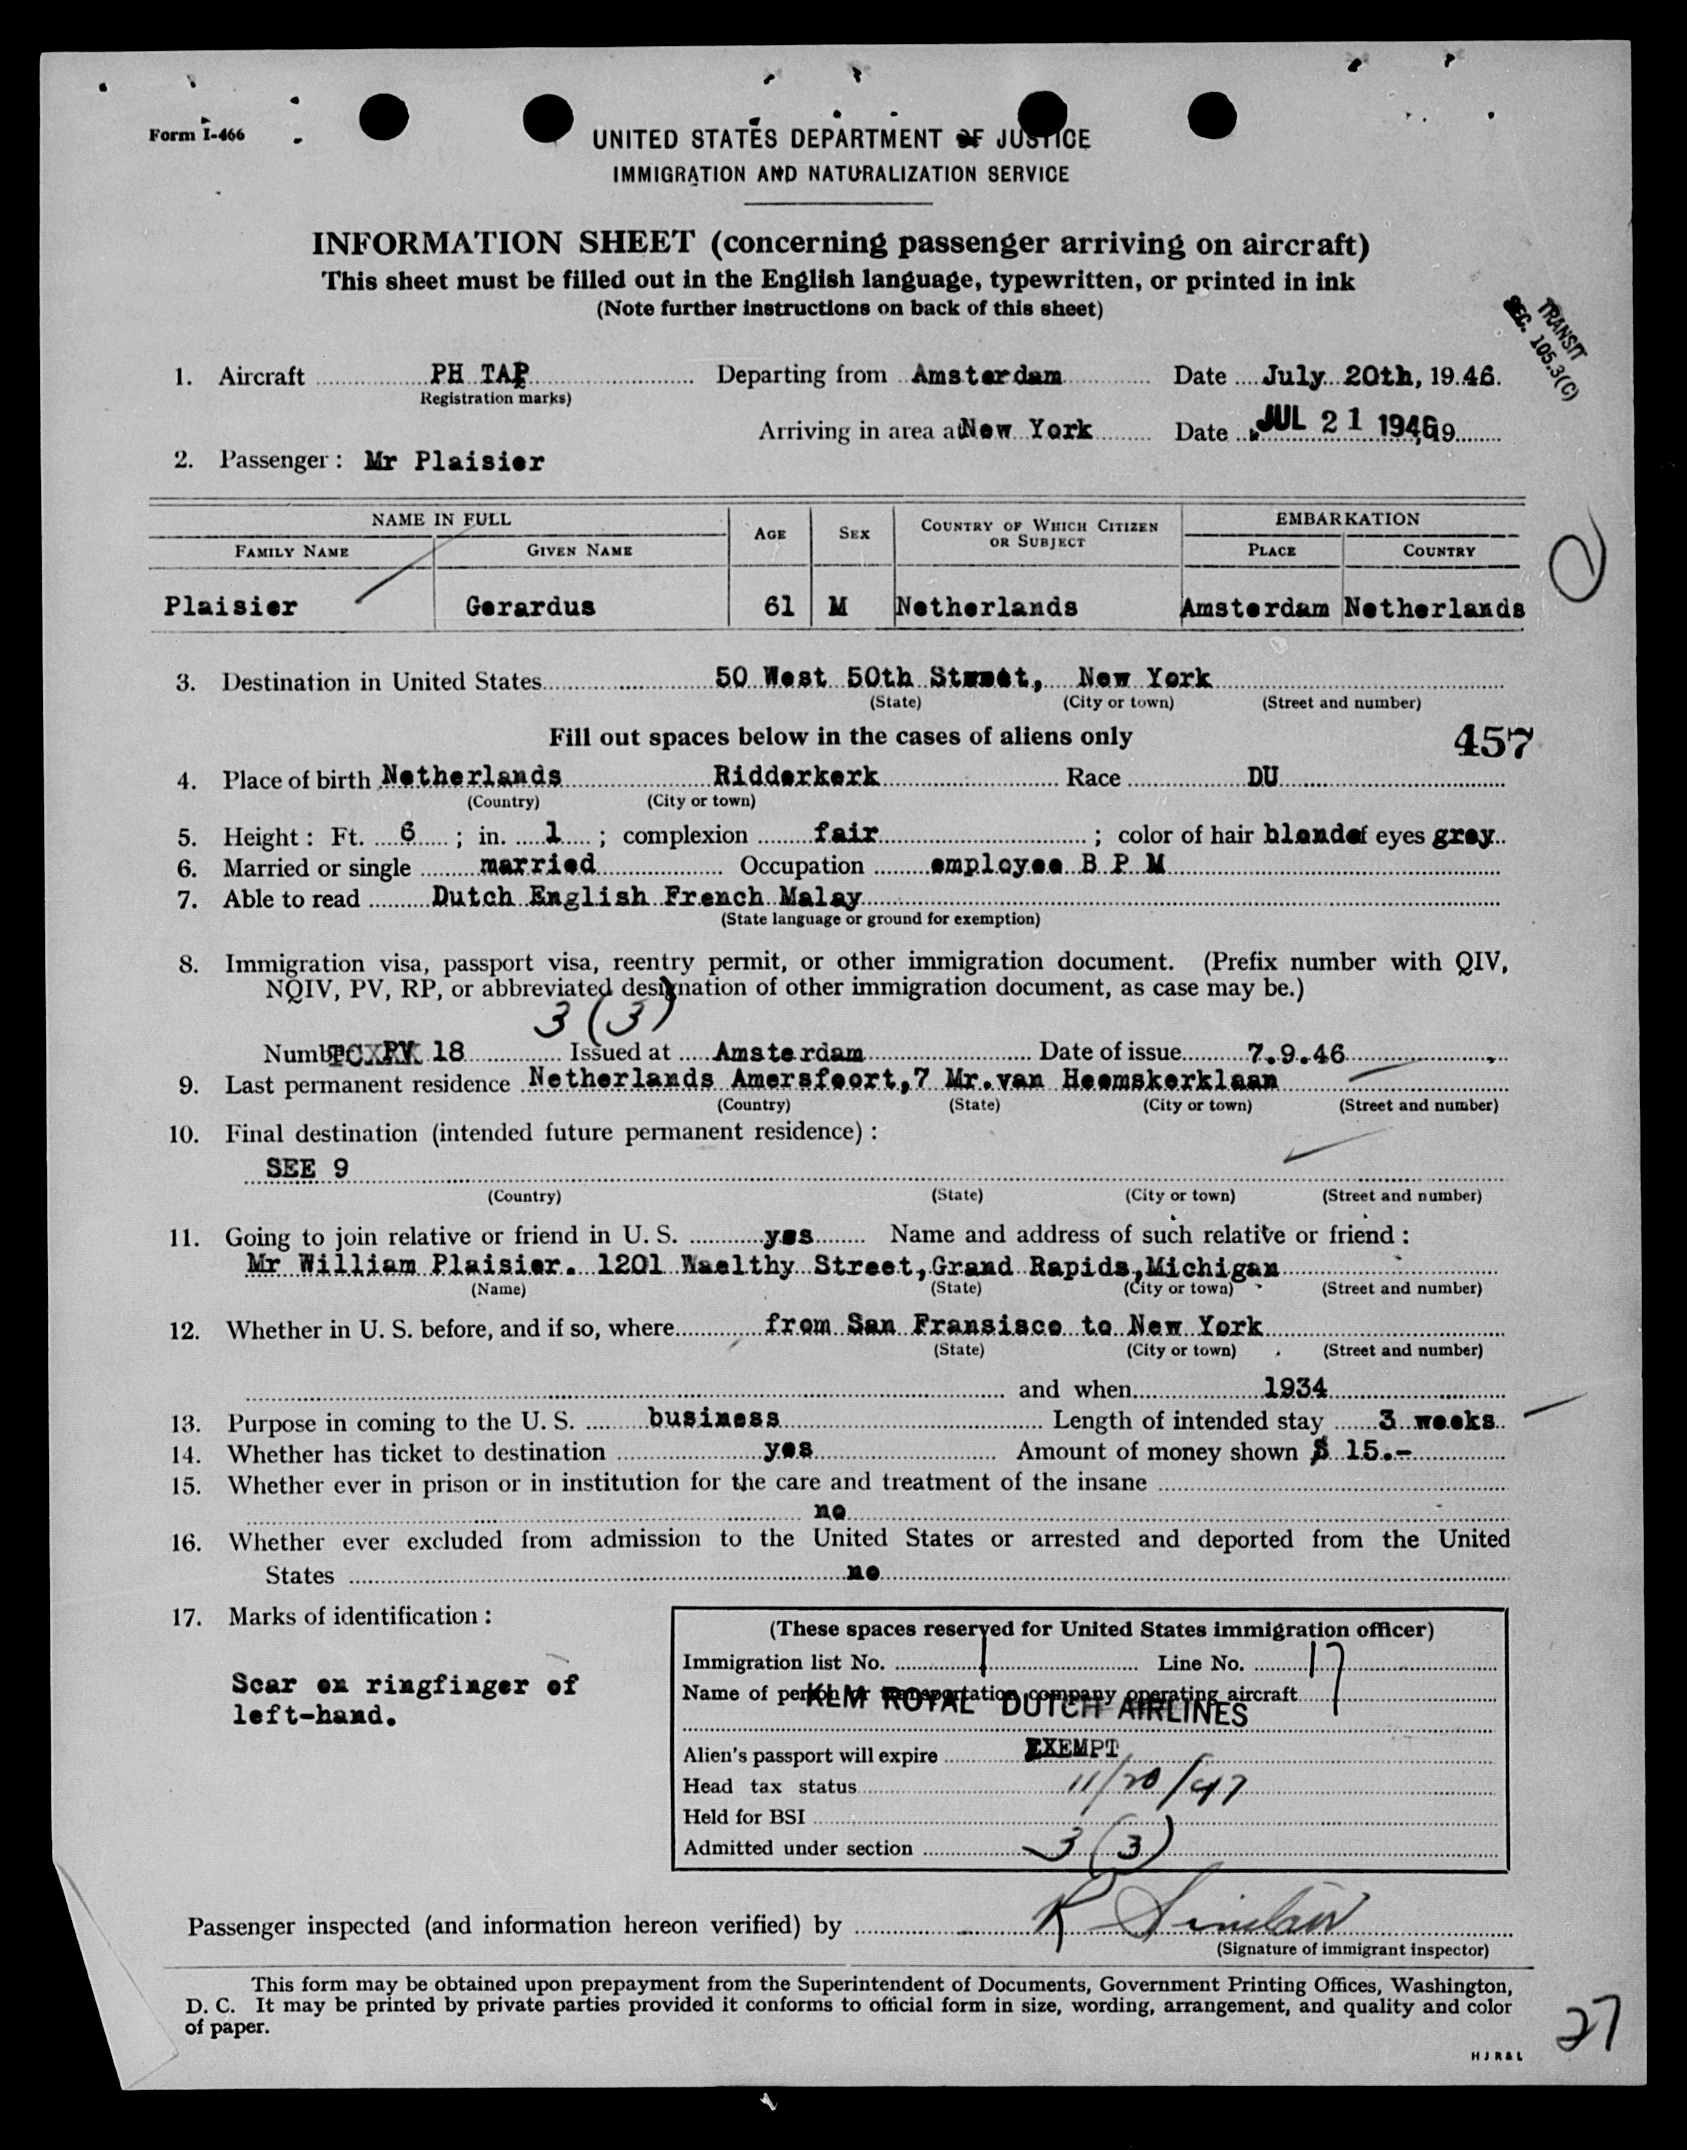 Form I-466
UNITED STATES DEPARTMENT OF JUSTICE
IMMIGRATION AND NATURALIZATION SERVICE
INFORMATION SHEET (concerning passenger arriving on aircraft)
This sheet must be filled out in the English language, typewritten, or printed in ink
(Note further instructions on back of this sheet)
TRANSIT
SEC. 105.3(C)
1. Aircraft PH TAP Departing from Amsterdam Date July 20th, 1946.
Registration marks)
Arriving in area at New York Date JUL 21 1946, 19
2. Passenger: Mr Plaisier
NAME IN FULL AGE SEX COUNTRY OF WHICH CITIZEN OR SUBJECT EMBARKATION
FAMILY NAME GIVEN NAME PLACE COUNTRY
Plaisier Gerardus 61 M Netherlands Amsterdam Netherlands
3. Destination in United States 50 West 50th Street, New York
(State) (City or town) (Street and number)
Fill out spaces below in the cases of aliens only 457
4. Place of birth Netherlands Ridderkerk Race DU
(Country) (City or town)
5. Height: Ft. 6; in. 1; complexion fair; color of hair blonde eyes grey
6. Married or single married Occupation employee B P M
7. Able to read Dutch English French Malay
(State language or ground for exemption)
8. Immigration visa, passport visa, reentry permit, or other immigration document. (Prefix number with QIV,
NQIV, PV, RP, or abbreviated designation of other immigration document, as case may be.)
3 (3)
Number 18 Issued at Amsterdam Date of issue 7.9.46
9. Last permanent residence Netherlands Amersfoort,7 Mr.van Heemskerklaan
(Country) (State) (City or town) (Street and number)
10. Final destination (intended future permanent residence):
SEE 9
(Country) (State) (City or town) (Street and number)
11. Going to join relative or friend in U. S. yes Name and address of such relative or friend:
Mr William Plaisier. 1201 Waelthy Street,Grand Rapids,Michigan
(Name) (State) (City or town) (Street and number)
12. Whether in U. S. before, and if so, where from San Fransisco to New York
(State) (City or town) (Street and number)
and when 1934
13. Purpose in coming to the U. S. business Length of intended stay 3 weeks
14. Whether has ticket to destination yes Amount of money shown $ 15.-
15. Whether ever in prison or in institution for the care and treatment of the insane
no
16. Whether ever excluded from admission to the United States or arrested and deported from the United
States no
17. Marks of identification:
Scar on ringfinger of
left-hand.
(These spaces reserved for United States immigration officer)
Immigration list No. 1 Line No. 17
Name of person or transportation company operating aircraft
KLM ROYAL DUTCH AIRLINES
Alien's passport will expire EXEMPT
Head tax status 11/20/47
Held for BSI
Admitted under section 3 (3)
Passenger inspected (and information hereon verified) by R Sinclair
(Signature of immigrant inspector)
This form may be obtained upon prepayment from the Superintendent of Documents, Government Printing Offices, Washington,
D. C. It may be printed by private parties provided it conforms to official form in size, wording, arrangement, and quality and color
of paper.
27
H J R & L